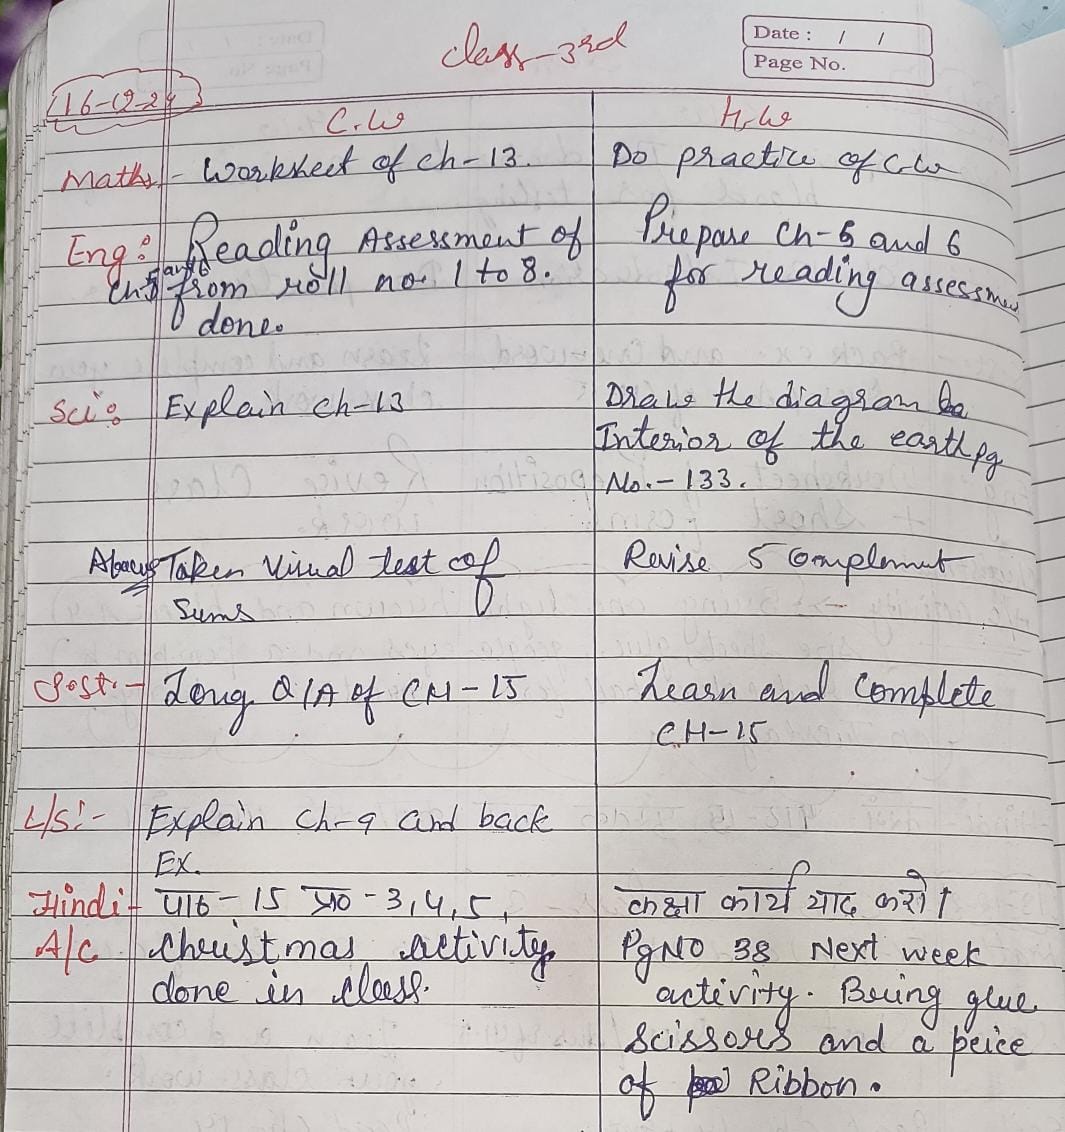 class-3rd
Date : / /
Page No.
16-12-24
C.W H.W
Maths:- Worksheet of ch-13. Do practice of C.w
Eng: Reading Assessment of Prepare Ch-5 and 6
Ch5 and 6 from roll no. 1 to 8. for reading assessmen
done.
Sci: Explain ch-13 Draw the diagram
Interior of the earth pg
No.- 133.
Abacus Taken Visual test of Revise 5 Complemnt
Sums
S.st:- Long Q/A of CH-15 Learn and Complete
CH-15
L/S:- Explain ch-9 and back
Ex.
Hindi:- पाठ- 15 प्र0 - 3,4,5, कक्षा कार्य याद करो।
A/C Christmas activity PgNO 38 Next week
done in class. activity. Bring glue
scissors and a peice
of Ribbon.